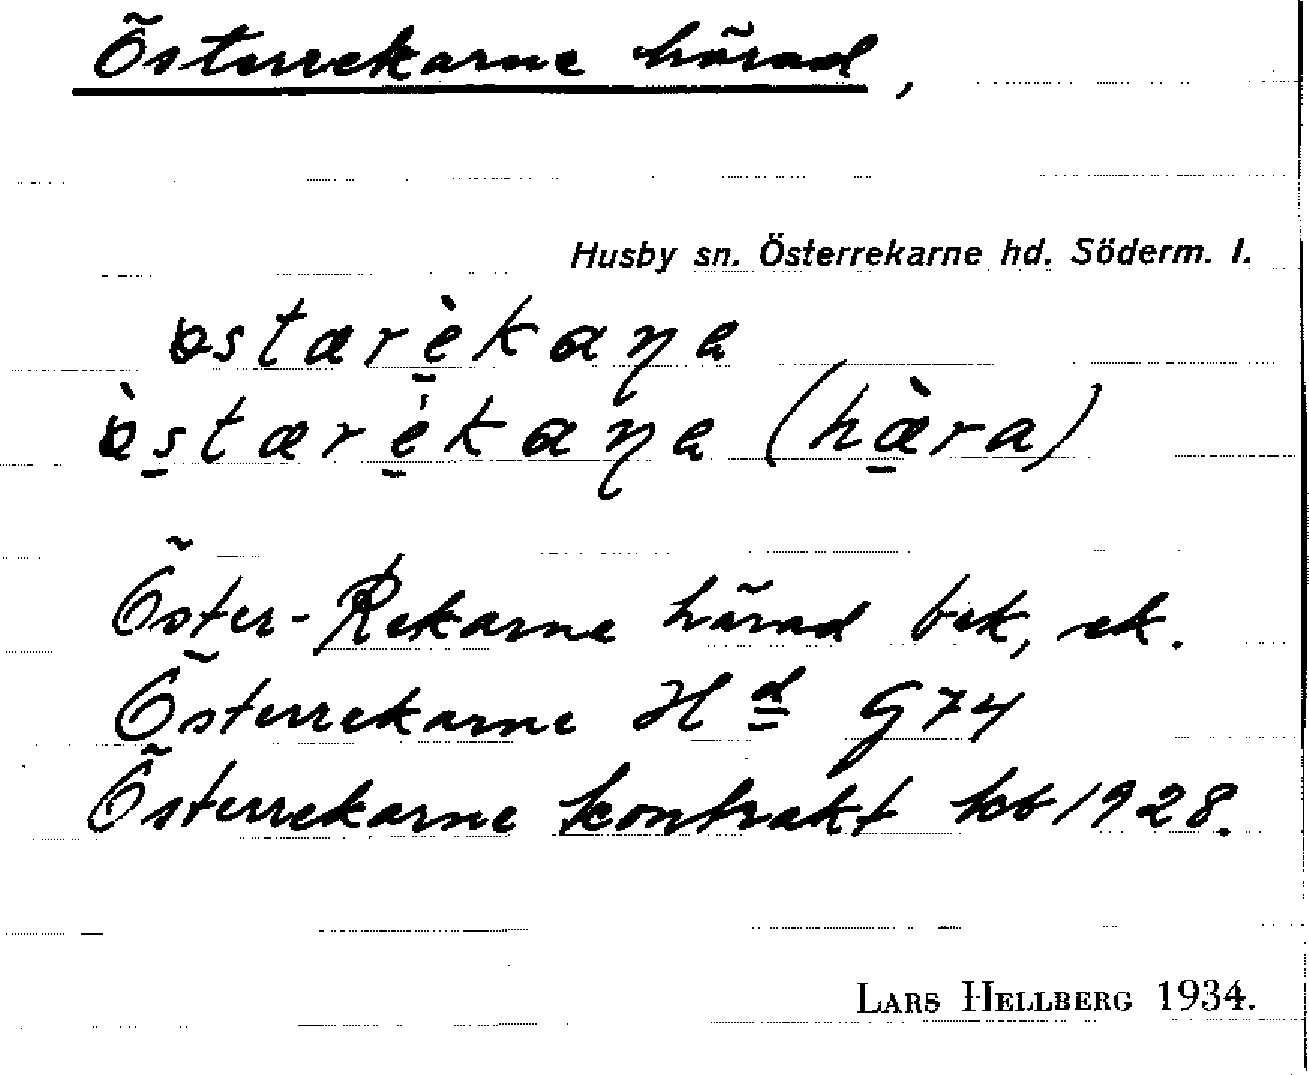 Österrekarne härad,
Husby sn. Österrekarne hd. Söderm. l.
östærèkaṇa
ö̀stærèkaṇa (hæ̀ra)
Öster-Rekarne härad bek, ek.
Österrekarne Hd G74
Österrekarne kontrakt kb 1928.
LARS HELLBERG 1934.